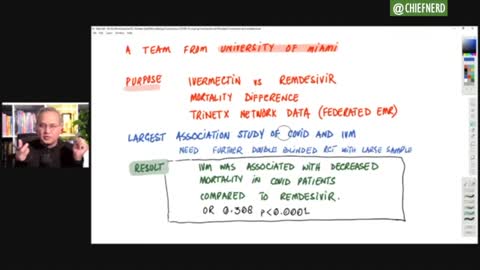 @CHIEFNERD
A TEAM FROM UNIVERSITY OF MIAMI
PURPOSE
IVERMECTIN VS REMDESIVIR
MORTALITY DIFFERENCE
TRINETX NETWORK DATA (FEDERATED EMR)
LARGEST ASSOCIATION STUDY OF COVID AND IVM
NEED FURTHER DOUBLE BLINDED RCT WITH LARGE SAMPLE
RESULT
IVM WAS ASSOCIATED WITH DECREASED
MORTALITY IN COVID PATIENTS
COMPARED TO REMDESIVIR.
OR 0.308 P<0.0001